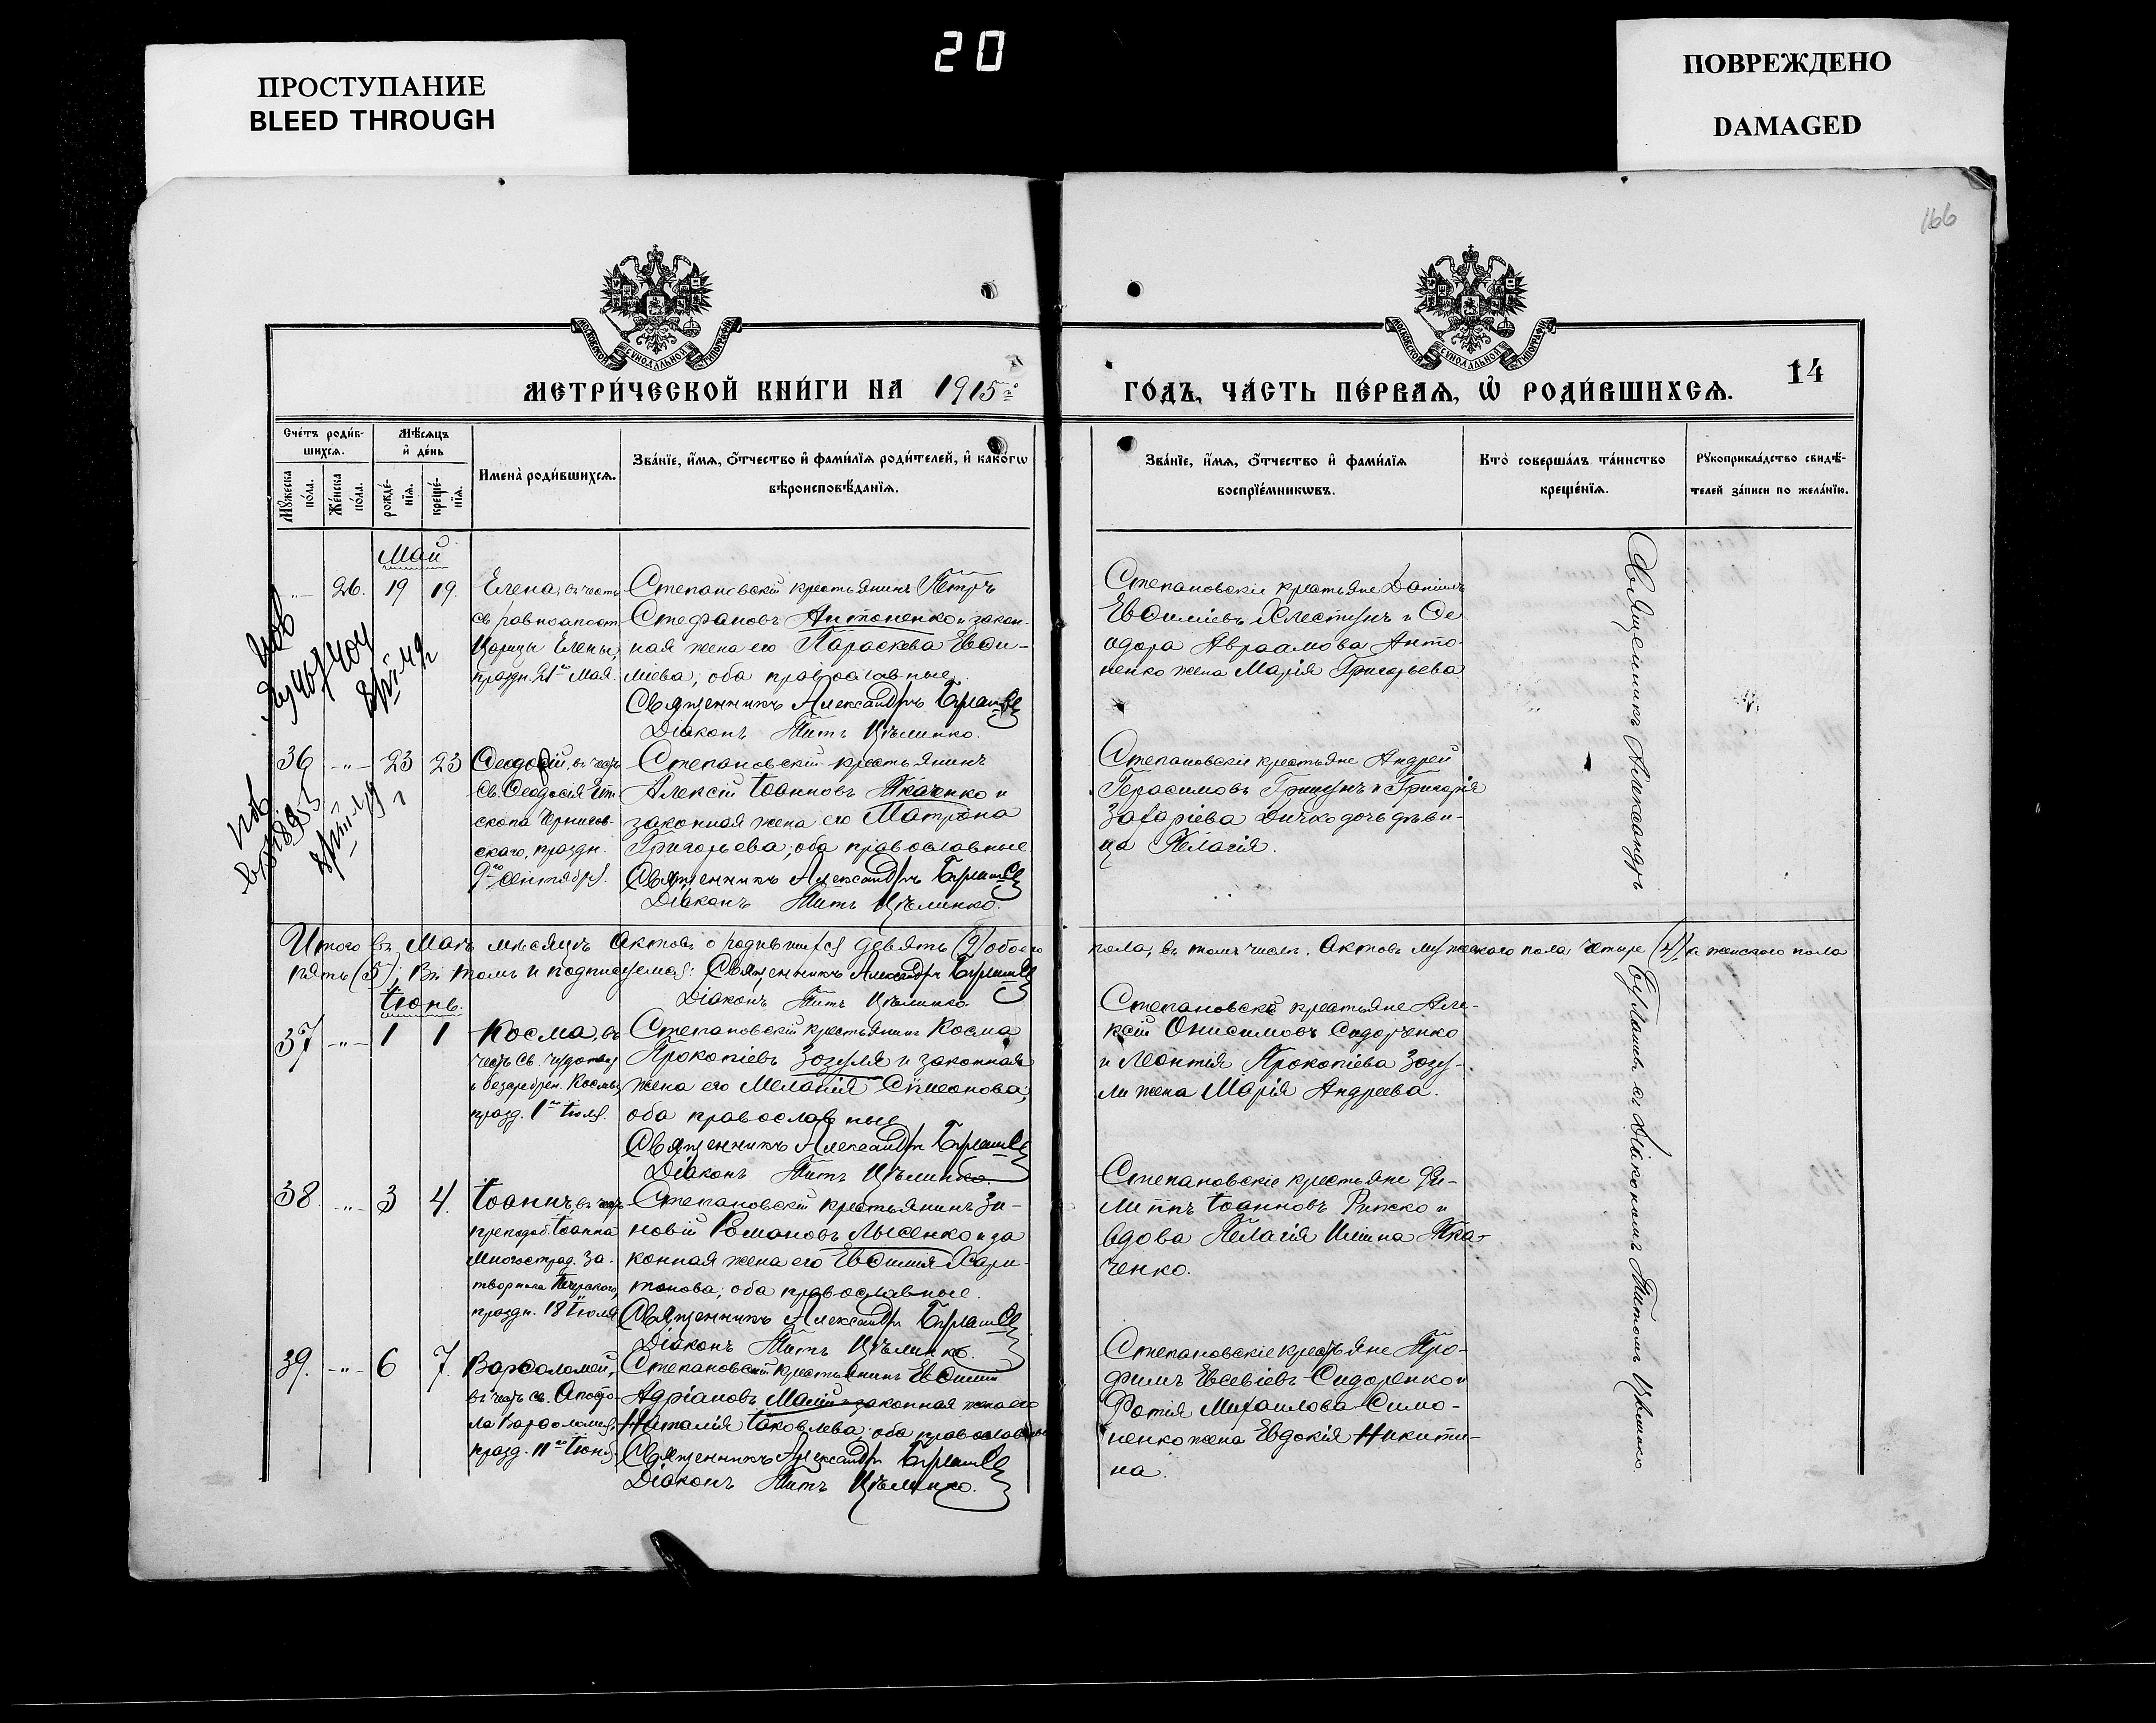 20
ПРОСТУПАНИЕ
BLEED THROUGH
ПОВРЕЖДЕНО
DAMAGED
166
МОСКОВСКОЙ СѴНОДАЛЬНОЙ ТИПОГРАФІИ
МОСКОВСКОЙ СѴНОДАЛЬНОЙ ТИПОГРАФІИ
МЕТРИ́ЧЕСКОЙ КНИ́ГИ НА 1915 го
ГО́ДЪ, ЧА́СТЬ ПЕ́РВАѦ, Ѡ҆ РОДИ́ВШИХСѦ. 14
Сче́тъ роди́в-
шихсѧ.
Мꙋ́жеска по́ла.
Же́нска по́ла.
Мѣ́сѧцъ
и҆ де́нь
рожде́-нїѧ.
креще́-нїѧ.
Имена̀ роди́вшихсѧ.
Зва́нїе, и҆́мѧ, ѻ҆́тчество и҆ фами́лїѧ роди́телей, и҆ како́гѡ
вѣроисповѣ́данїѧ.
Зва́нїе, и҆́мѧ, ѻ҆́тчество и҆ фами́лїѧ
воспрїе́мникѡвъ.
Кто̀ соверша́лъ та́инство
креще́нїѧ.
Рꙋкоприкла́дство свидѣ́-
телей за́писи по жела́нїю.
Май
26. 19 19.
Елена, въ честь
св равноапост
Царицы Елены,
праздн. 21го Мая
Степановскій крестьянинъ Петръ
Стефановъ Антоненко и закон-
ная жена его Параскева Евѳи-
міева; оба православные.
Священникъ Александръ
Діаконъ Титъ Цѣлинко.
Степановскіе крестьяне Даніилъ
Евѳиміевъ Хлестунъ и Ѳе
одора Авраамова Анто-
ненко жена Марія Григорьева
36 -"- 23 23
Ѳеодосій, въ честь
Св. Ѳеодосія Епи
скопа Чернигов-
скаго, праздн.
9го Сентября.
Степановскій крестьянинъ
Алексій Іоанновъ Ткаченко и
законная жена его Матрона
Григорьева; оба православные
Священникъ Александръ
Діаконъ Титъ Цѣлинко.
Степановскіе крестьяне Андрей
Герасимовъ Гришунъ и Григорія
Захаріева Дичко дочь дѣви-
ца Пелагія.
Итого въ Маѣ мѣсяцѣ Актовъ о родившихся девять (9) обоего пола, въ томъ числѣ: Актовъ мужескаго пола четыре (4), а женскаго пола
пять (5); въ томъ и подписуемся: Священникъ Александръ
Діаконъ Титъ Цѣлинко
Іюнь.
37 -"- 1 1
Косма, въ
честь Св. чудотвор
и безсребрен. Космы,
празд. 1го Іюля.
Степановскій крестьянинъ Косма
Прокопіевъ Зозуля и законная
жена его Меланія Симеонова;
оба православные
Священникъ Александръ
Діаконъ Титъ Цѣлинко.
Степановскіе крестьяне Але-
ксій Онисимовъ Сидоренко
и Леонтія Прокопіева Зозу-
ли жена Марія Андреева.
38 -"- 3 4.
Іоаннъ, въ честь
преподоб. Іоанна
Многострад. За-
творника Печерскаго,
праздн. 18 Іюля
Степановскій крестьянинъ Зи-
новій Романовъ Лысенко и за
конная жена его Евѳимія Хари-
тонова; оба православные.
Священникъ Александръ
Діаконъ Титъ Цѣлинко.
Степановскіе крестьяне Фи-
липпъ Іоанновъ и
вдова Пелагія Иліина Тка-
ченко.
39. -"- 6 7.
Варѳоломей,
въ честь св. Апосто-
ла Варѳоломея,
празд. 11го Іюня
Степановскій крестьянинъ Евѳимій
Адріановъ Малій и законная жена его
Наталія Іаковлева; оба православные
Священникъ Александръ
Діаконъ Титъ Цѣлинко.
Степановскіе крестьяне Тро-
фимъ Евсевіевъ Сидоренко и
Фотія Михаилова Симо-
ненко жена Евдокія Никити-
на.
Священникъ Александръ съ Діакономъ Титомъ Цѣлинко.